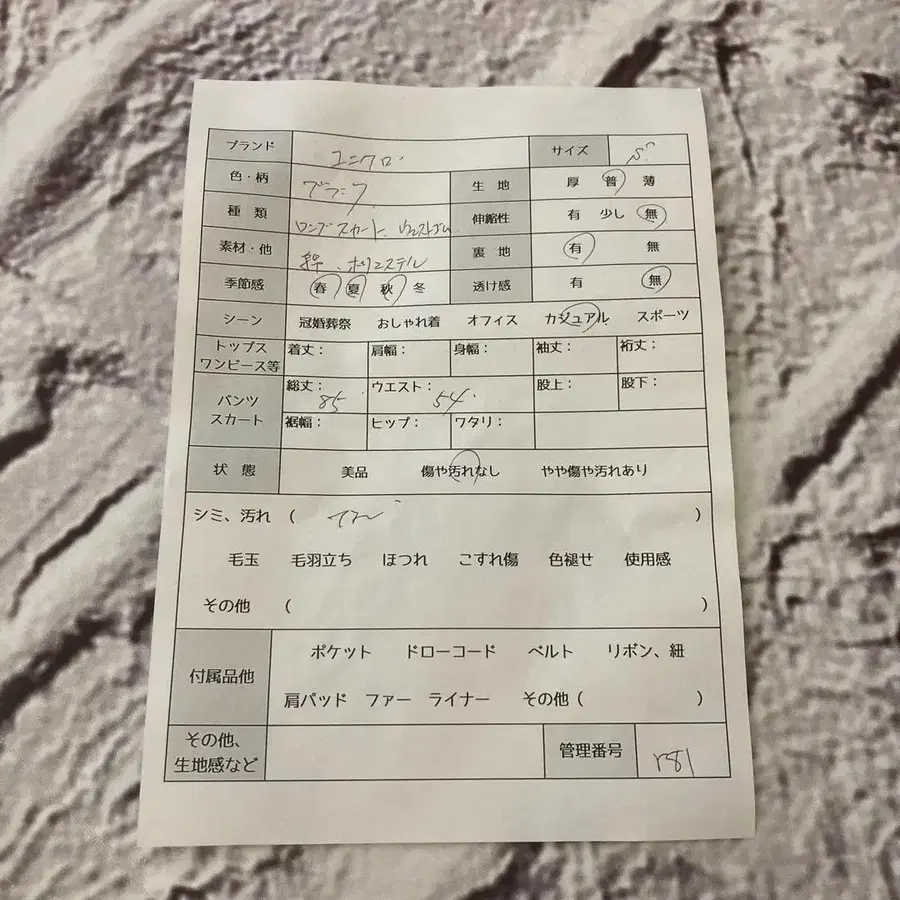 ブランド ユニクロ サイズ S
色・柄 ブラック 生 地 厚 普 薄
種 類 ロングスカート、ウエストゴム 伸縮性 有 少し 無
素材・他 綿、ポリエステル 裏 地 有 無
季節感 春 夏 秋 冬 透け感 有 無
シーン 冠婚葬祭 おしゃれ着 オフィス カジュアル スポーツ
トップス
ワンピース等 着丈: 肩幅: 身幅: 袖丈: 裄丈:
パンツ
スカート 総丈: 85 ウエスト: 54 股上: 股下:
裾幅: ヒップ: ワタリ:
状 態 美品 傷や汚れなし やや傷や汚れあり
シミ、汚れ ( )
毛玉 毛羽立ち ほつれ こすれ傷 色褪せ 使用感
その他 ( )
付属品他 ポケット ドローコード ベルト リボン、紐
肩パッド ファー ライナー その他 ( )
その他、
生地感など 管理番号 r81